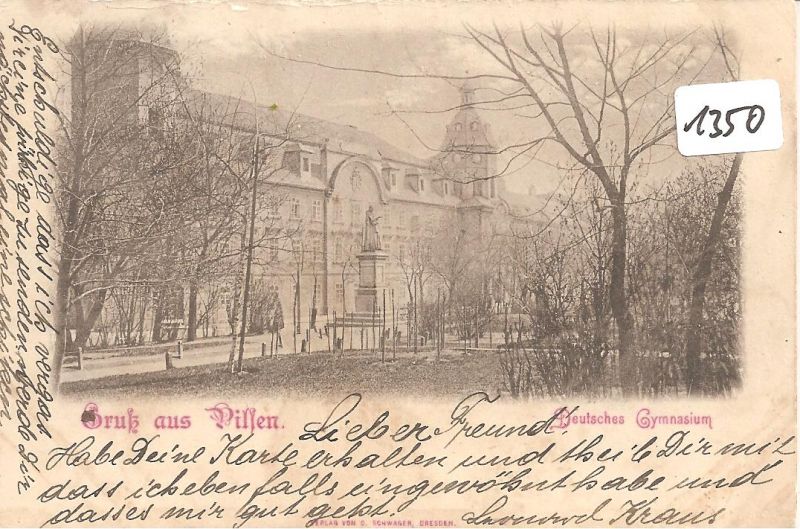 1350
Gruß aus Pilsen.
Deutsches Gymnasium
Lieber Freund!
Habe Deine Karte erhalten und theile Dir mit
dass ich ebenfalls eingewöhnt habe und
dasses mir gut geht.
Leonard Kraus
VERLAG VON O. SCHWAGER, DRESDEN.
Entschuldige dass ich vergas
Dir eine Marke zu senden, werde Dir